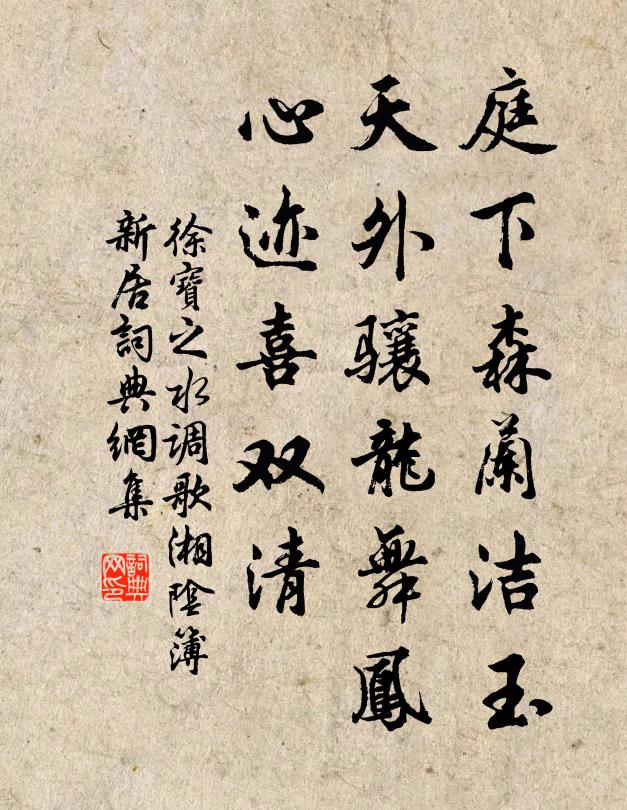 庭下森蘭洁玉
天外骧龍舞鳳
心迹喜双清
徐寶之水调歌湘陰簿
新居詞典網集
詞典网印